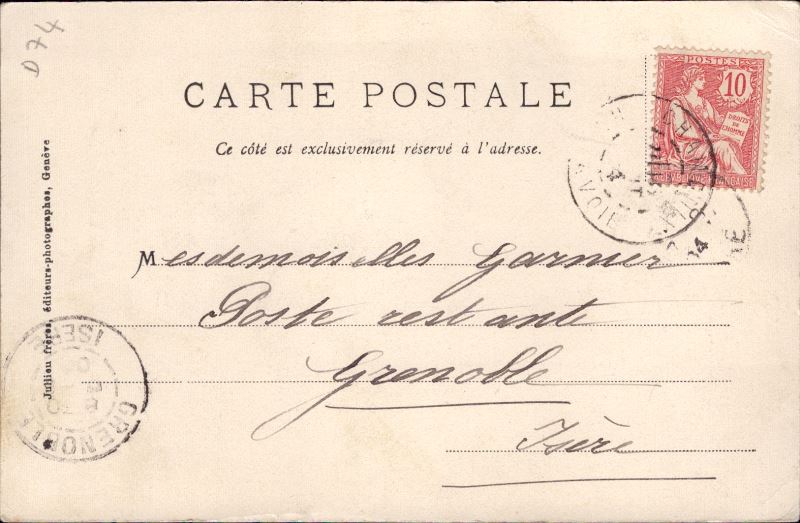 D 74
POSTES
10
DROITS
DE
L'HOMME
RÉPUBLIQUE FRANÇAISE
CARTE POSTALE
Ce côté est exclusivement réservé à l'adresse.
Mesdemoiselles Garnier
Poste restante
Grenoble
Isère
Jullien frères, éditeurs-photographes, Genève
GRENOBLE
ISERE